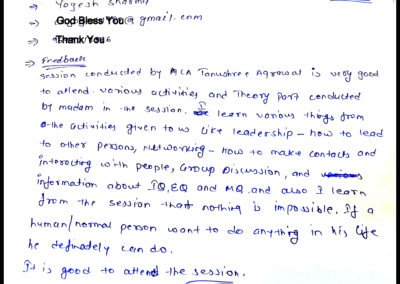 ⇒ Yogesh Sharma
⇒ God Bless You @ gmail.com
⇒ Thank You 6
⇒ Feedback
session conducted by MCA Tanushree Agrawal is very good
to attend various activities and Theory Part conducted
by madam in the session. I learn various things from
the activities given to us like leadership - how to lead
to other persons, Networking - How to make contacts and
interacting with people, Group Discussion, and
information about IQ, EQ and MQ. and also I learn
from the session that nothing is impossible. If a
human/normal person want to do anything in his life
he definately can do.
It is good to attend the session.